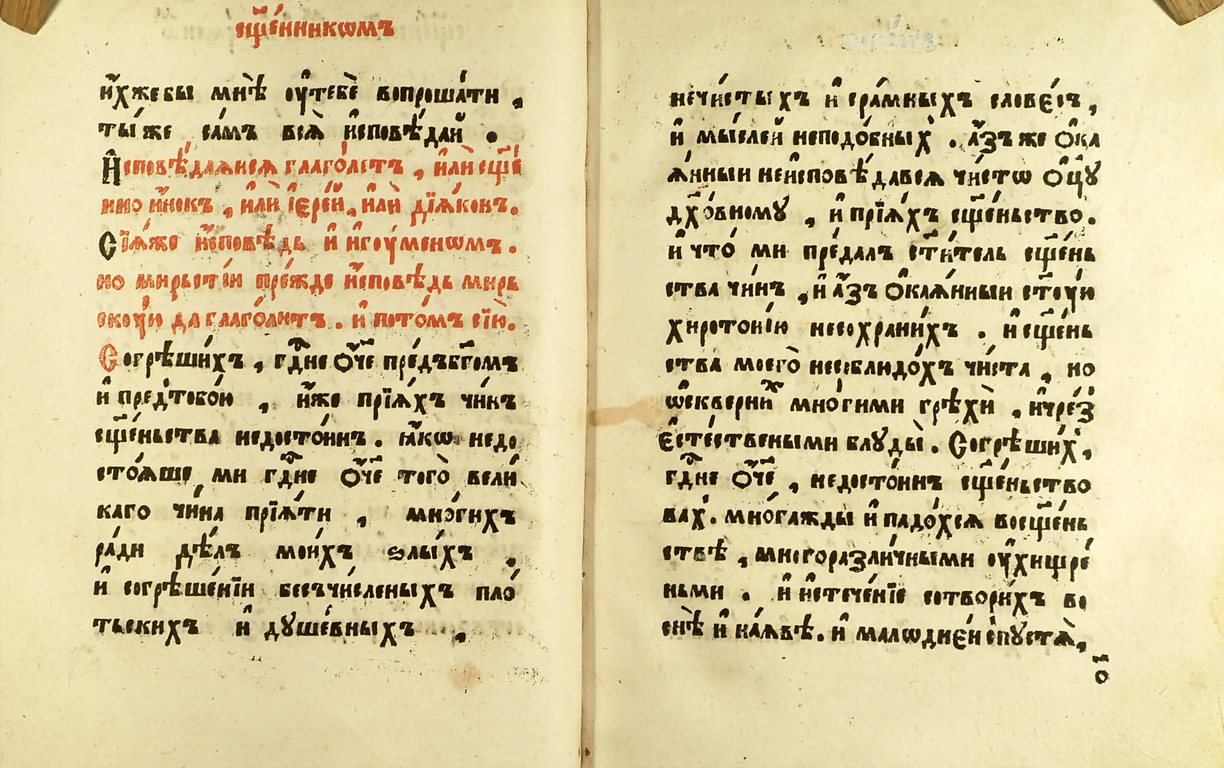 сщ҃е́нникѡмъ
и҆́хже бы мнѣ̀ ᲂу҆тебѐ вопроша́ти ,
ты́ же са́мъ всѧ̀ и҆сповѣ́дай .
И҆сповѣ́даѧисѧ глаго́летъ , и҆лѝ сщ҃е́
нно и҆́нокъ , и҆лѝ і҆ере́й , и҆лѝ дїѧ́конъ .
Сїѧ́же и҆́сповѣдь и҆ игꙋ́меномъ .
но мирьсті́и пре́жде и҆́сповѣдь мирь
скꙋ́ю да глаго́лютъ . и҆ пото́мъ сїю̀ .
Согрѣши́хъ , гд҇не ѻ҆́ч҃е пре́дъ бг҃омъ
и҆ пред̾ тобо́ю , и҆́же прїѧ́хъ чи́нъ
сщ҃е́ньства недосто́инъ . ꙗ҆́кѡ недо
сто́ѧше ми гд҇не ѻ҆́ч҃е того̀ вели́
каго чи́на прїѧ́ти , мно́гихъ
ра́ди дѣ́лъ мои́хъ ѕлы́хъ ,
и҆ согрѣше́нїи бесъчи́сленыхъ пло́
тьскихъ и҆ дꙋше́вныхъ ,
нечи́стыхъ и҆ сра́мныхъ слове́съ ,
и҆ мы́слей неподо́бныхъ . а҆́зъ же ѻ҆ка
ѧ́нныи неи҆сповѣ́давсѧ чи́стѡ ѻ҆ц҃ꙋ̀
дх҃о́вномꙋ , и҆ прїѧ́хъ сщ҃е́ньство .
и҆ что́ ми пре́далъ ст҃и́тель сщ҃е́нь
ства чи́нъ , и҆ а҆́зъ ѻ҆каѧ́нныи ст҃ꙋ́ю
хирото́нїю несохрани́хъ . и҆ сщ҃е́нь
ства моего̀ несоблюдо́хъ чи́ста , но
ѡ҆скверни́х мно́гими грѣхѝ , и҆ чре́з̾
є҆сте́ствеными блꙋ́ды . Согрѣши́х̾ ,
гд҇не ѻ҆́ч҃е , недосто́инъ сщ҃е́ньство
вах̾ . мно́гажды и҆ падо́хсѧ восщ҃е́нь
ствѣ , многоразли́чными ᲂу҆хищре́
ньми . и҆ и҆стече́нїе сотвори́хъ во
снѣ̀ и҆ наѧ́вѣ . и҆ малѡдне́и ѻ҆пꙋстѧ̀ ,
ѻ҃